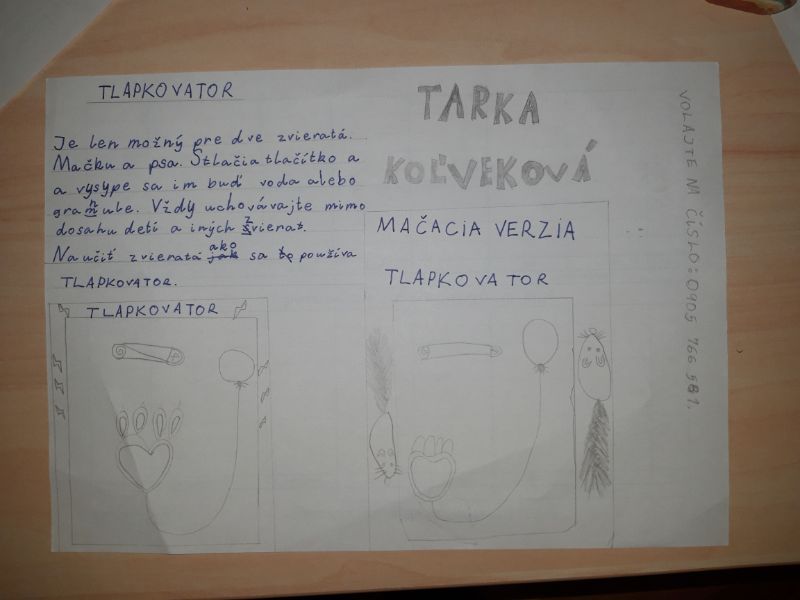 TLAPKOVATOR
Je len možný pre dve zvieratá.
Mačku a psa. Stlačia tlačítko a
a vysype sa im buď voda alebo
granule. Vždy uchovávajte mimo
dosahu detí a iných zvierat.
Naučiť zvieratá ako sa používa
TLAPKOVATOR.
TLAPKOVATOR
TARKA
KOĽVEKOVÁ
MAČACIA VERZIA
TLAPKOVATOR
VOLAJTE NA ČÍSLO: 0905 766 581.